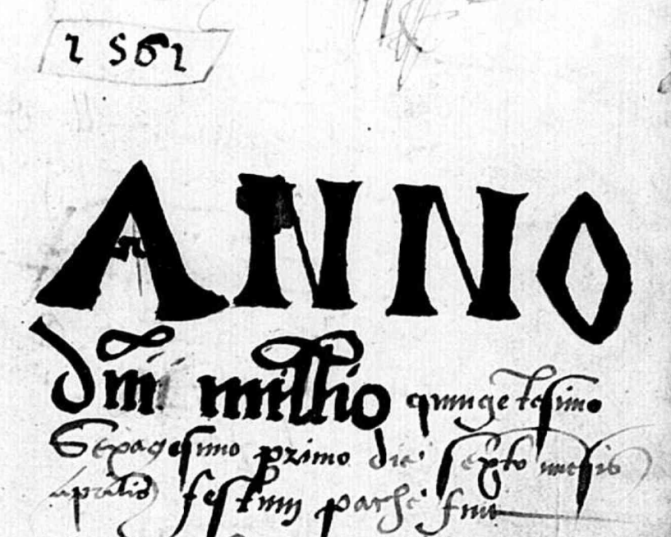 1561
ANNO
dni millio quingetesimo
Sexagesimo primo die sexto mesis
aprilis festum pache fuit